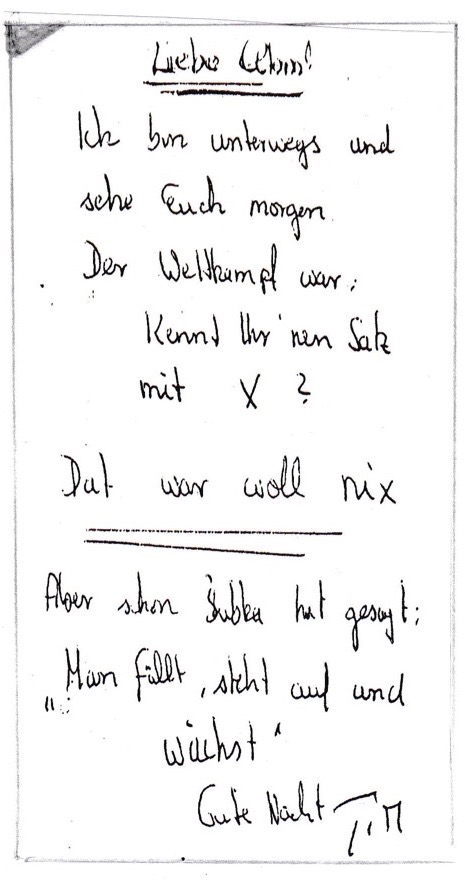 Liebe
Ich bin unterwegs und
sehe Euch morgen.
Der Wettkampf war:
Kennt Ihr 'nen Satz
mit X ?
Dat war woll nix
Aber schon Bubka hat gesagt:
"Man fällt, steht auf und
wächst"
Gute Nacht Tim